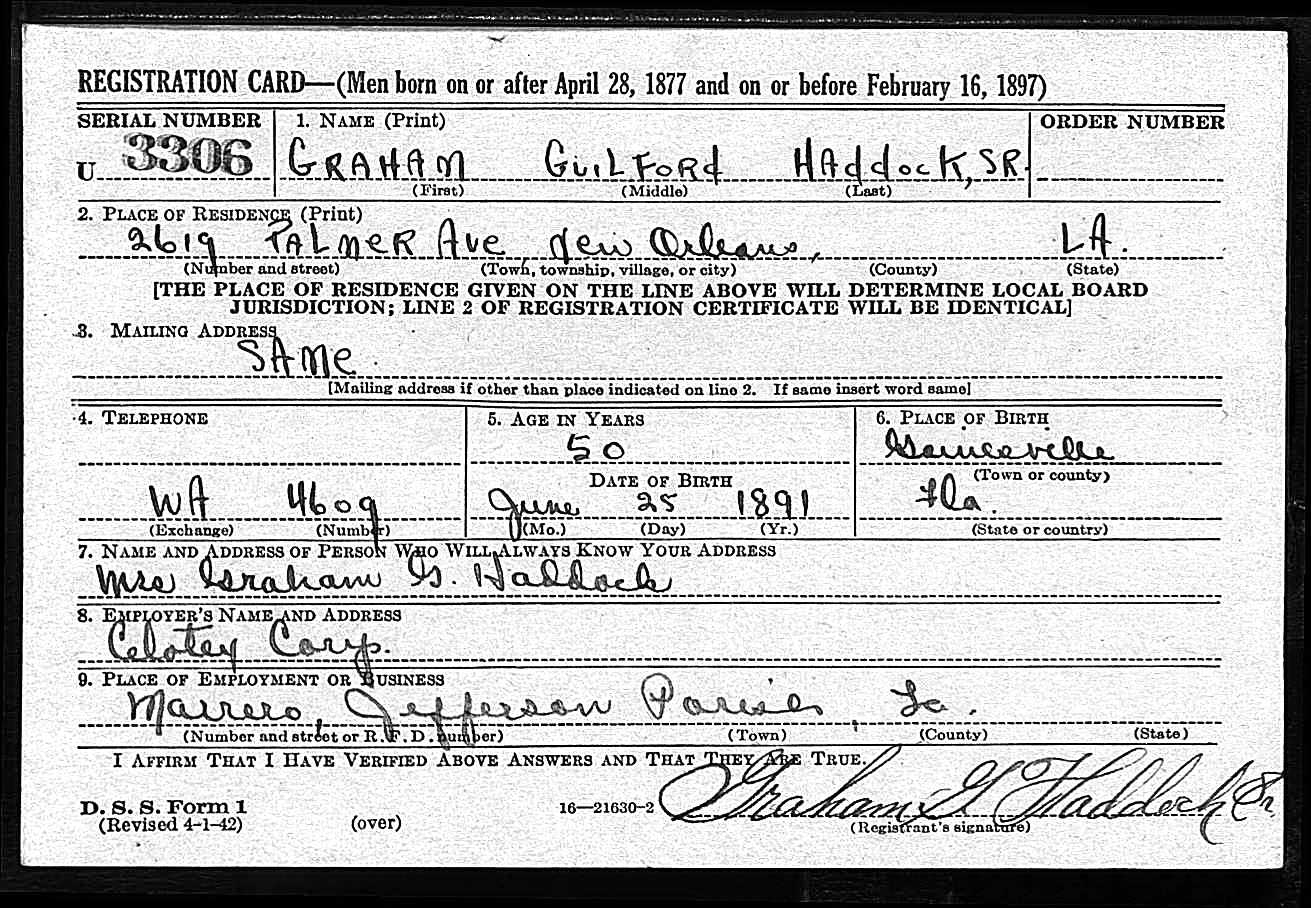 REGISTRATION CARD—(Men born on or after April 28, 1877 and on or before February 16, 1897)
SERIAL NUMBER 1. NAME (Print) ORDER NUMBER
U 3306 GRAHAM GUILFORD HADDOCK, SR.
(First) (Middle) (Last)
2. PLACE OF RESIDENCE (Print)
2619 PALMER AVE New Orleans, LA.
(Number and street) (Town, township, village, or city) (County) (State)
[THE PLACE OF RESIDENCE GIVEN ON THE LINE ABOVE WILL DETERMINE LOCAL BOARD
JURISDICTION; LINE 2 OF REGISTRATION CERTIFICATE WILL BE IDENTICAL]
3. MAILING ADDRESS
SAME
[Mailing address if other than place indicated on line 2. If same insert word same]
4. TELEPHONE 5. AGE IN YEARS 6. PLACE OF BIRTH
50 Gainesville
DATE OF BIRTH (Town or county)
WA 4609 June 25 1891 Fla.
(Exchange) (Number) (Mo.) (Day) (Yr.) (State or country)
7. NAME AND ADDRESS OF PERSON WHO WILL ALWAYS KNOW YOUR ADDRESS
Mrs Graham G. Haddock
8. EMPLOYER'S NAME AND ADDRESS
Celotex Corp.
9. PLACE OF EMPLOYMENT OR BUSINESS
Marrero, Jefferson Parish, La.
(Number and street or R. F. D. number) (Town) (County) (State)
I AFFIRM THAT I HAVE VERIFIED ABOVE ANSWERS AND THAT THEY ARE TRUE.
D. S. S. Form 1
(Revised 4-1-42) (over) 16—21630-2 Graham G Haddock Sr.
(Registrant's signature)